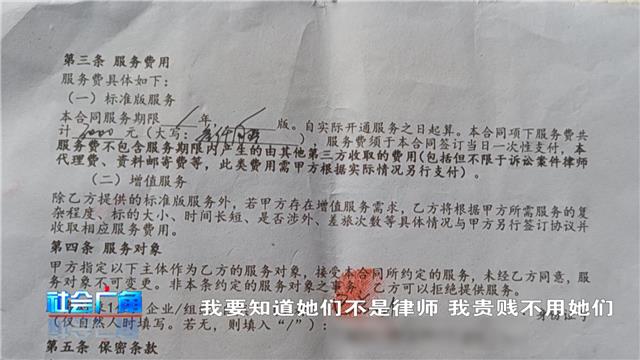 第三条 服务费用
服务费具体如下：
（一）标准版服务
本合同服务期限 年， 版。自实际开通服务之日起算。本合同项下服务费共
计 元（大写： ） 服务费须于本合同签订当日一次性支付，本
服务费不包含服务期限内产生的由其他第三方收取的费用（包括但不限于诉讼案件律师
代理费、资料邮寄费等，此类费用需甲方根据实际情况另行支付）。
（二）增值服务
除乙方提供的标准版服务外，若甲方存在增值服务需求，乙方将根据甲方所需服务的复
杂程度、标的大小、时间长短、是否涉外、差旅次数等具体情况与甲方另行签订协议并
收取相应服务费用。
第四条 服务对象
甲方指定以下主体作为乙方的服务对象，接受本合同所约定的服务，未经乙方同意，服
务对象不可变更。非本条约定的服务对象之事务，乙方可以拒绝提供服务。
社会广角
企业/组
我要知道她们不是律师 我贵贱不用她们
（仅自然人时填写。若无，则填入“/”）：
第五条 保密条款